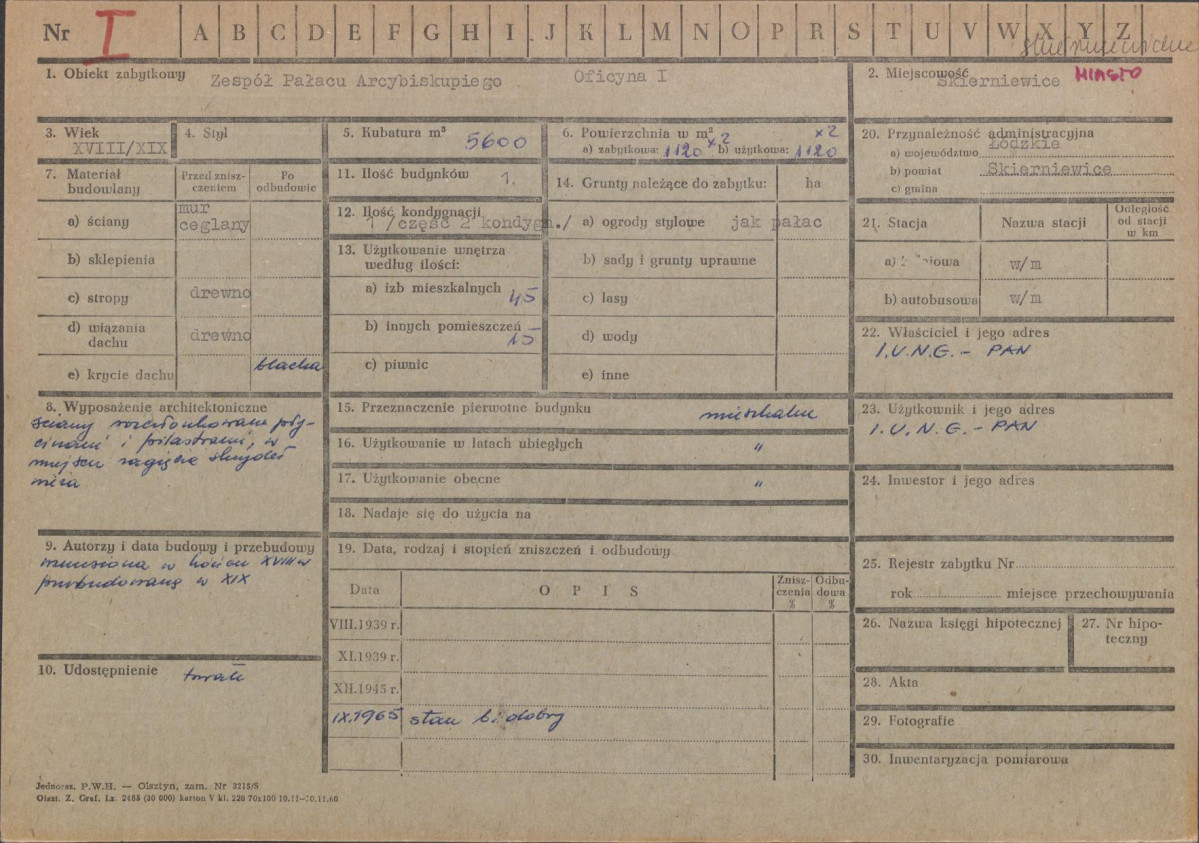 Nr I A B C D E F G H I J K L M N O P R S T U V W X Y Z
skierniewickie
1. Obiekt zabytkowy Zespół Pałacu Arcybiskupiego Oficyna I
2. Miejscowość Skierniewice MIASTO
3. Wiek XVIII/XIX
4. Styl
5. Kubatura m³ 5600
6. Powierzchnia w m² x2
a) zabytkowa: 1120 x2 b) użytkowa: 1120
7. Materiał budowlany
Przed znisz-
czeniem
Po
odbudowie
a) ściany mur
ceglany
b) sklepienia
c) stropy drewno
d) wiązania
dachu drewno
e) krycie dachu blacha
8. Wyposażenie architektoniczne
ściany rozczłonkowane pły-
cinami i pilastrami, w
miejscu zagięcia
9. Autorzy i data budowy i przebudowy
wzniesiona w końcu XVIII w
przebudowana w XIX
10. Udostępnienie
11. Ilość budynków 1.
12. Ilość kondygnacji
1 /część 2 kondygn./
13. Użytkowanie wnętrza
według ilości:
a) izb mieszkalnych 45
b) innych pomieszczeń
15
c) piwnic
14. Grunty należące do zabytku: ha
a) ogrody stylowe jak pałac
b) sady i grunty uprawne
c) lasy
d) wody
e) inne
15. Przeznaczenie pierwotne budynku mieszkalne
16. Użytkowanie w latach ubiegłych "
17. Użytkowanie obecne "
18. Nadaje się do użycia na
19. Data, rodzaj i stopień zniszczeń i odbudowy
Data
O P I S
Znisz-
czenia
%
Odbu-
dowa
%
VIII.1939 r.
XI.1939 r.
XII.1945 r.
IX.1965 stan b. dobry
20. Przynależność administracyjna
a) województwo Łódzkie
b) powiat Skierniewice
c) gmina
21. Stacja
Nazwa stacji
Odległość
od stacji
w km
a) w/m
b) autobusowa w/m
22. Właściciel i jego adres
I.U.N.G. - PAN
23. Użytkownik i jego adres
I.U.N.G. - PAN
24. Inwestor i jego adres
25. Rejestr zabytku Nr
rok miejsce przechowywania
26. Nazwa księgi hipotecznej
27. Nr hipo-
teczny
28. Akta
29. Fotografie
30. Inwentaryzacja pomiarowa
Jednoraz. P.W.H. — Olsztyn, zam. Nr 3215/S
Olszt. Z. Graf. Lz. 2488 (30 000) karton V kl. 220 70x100